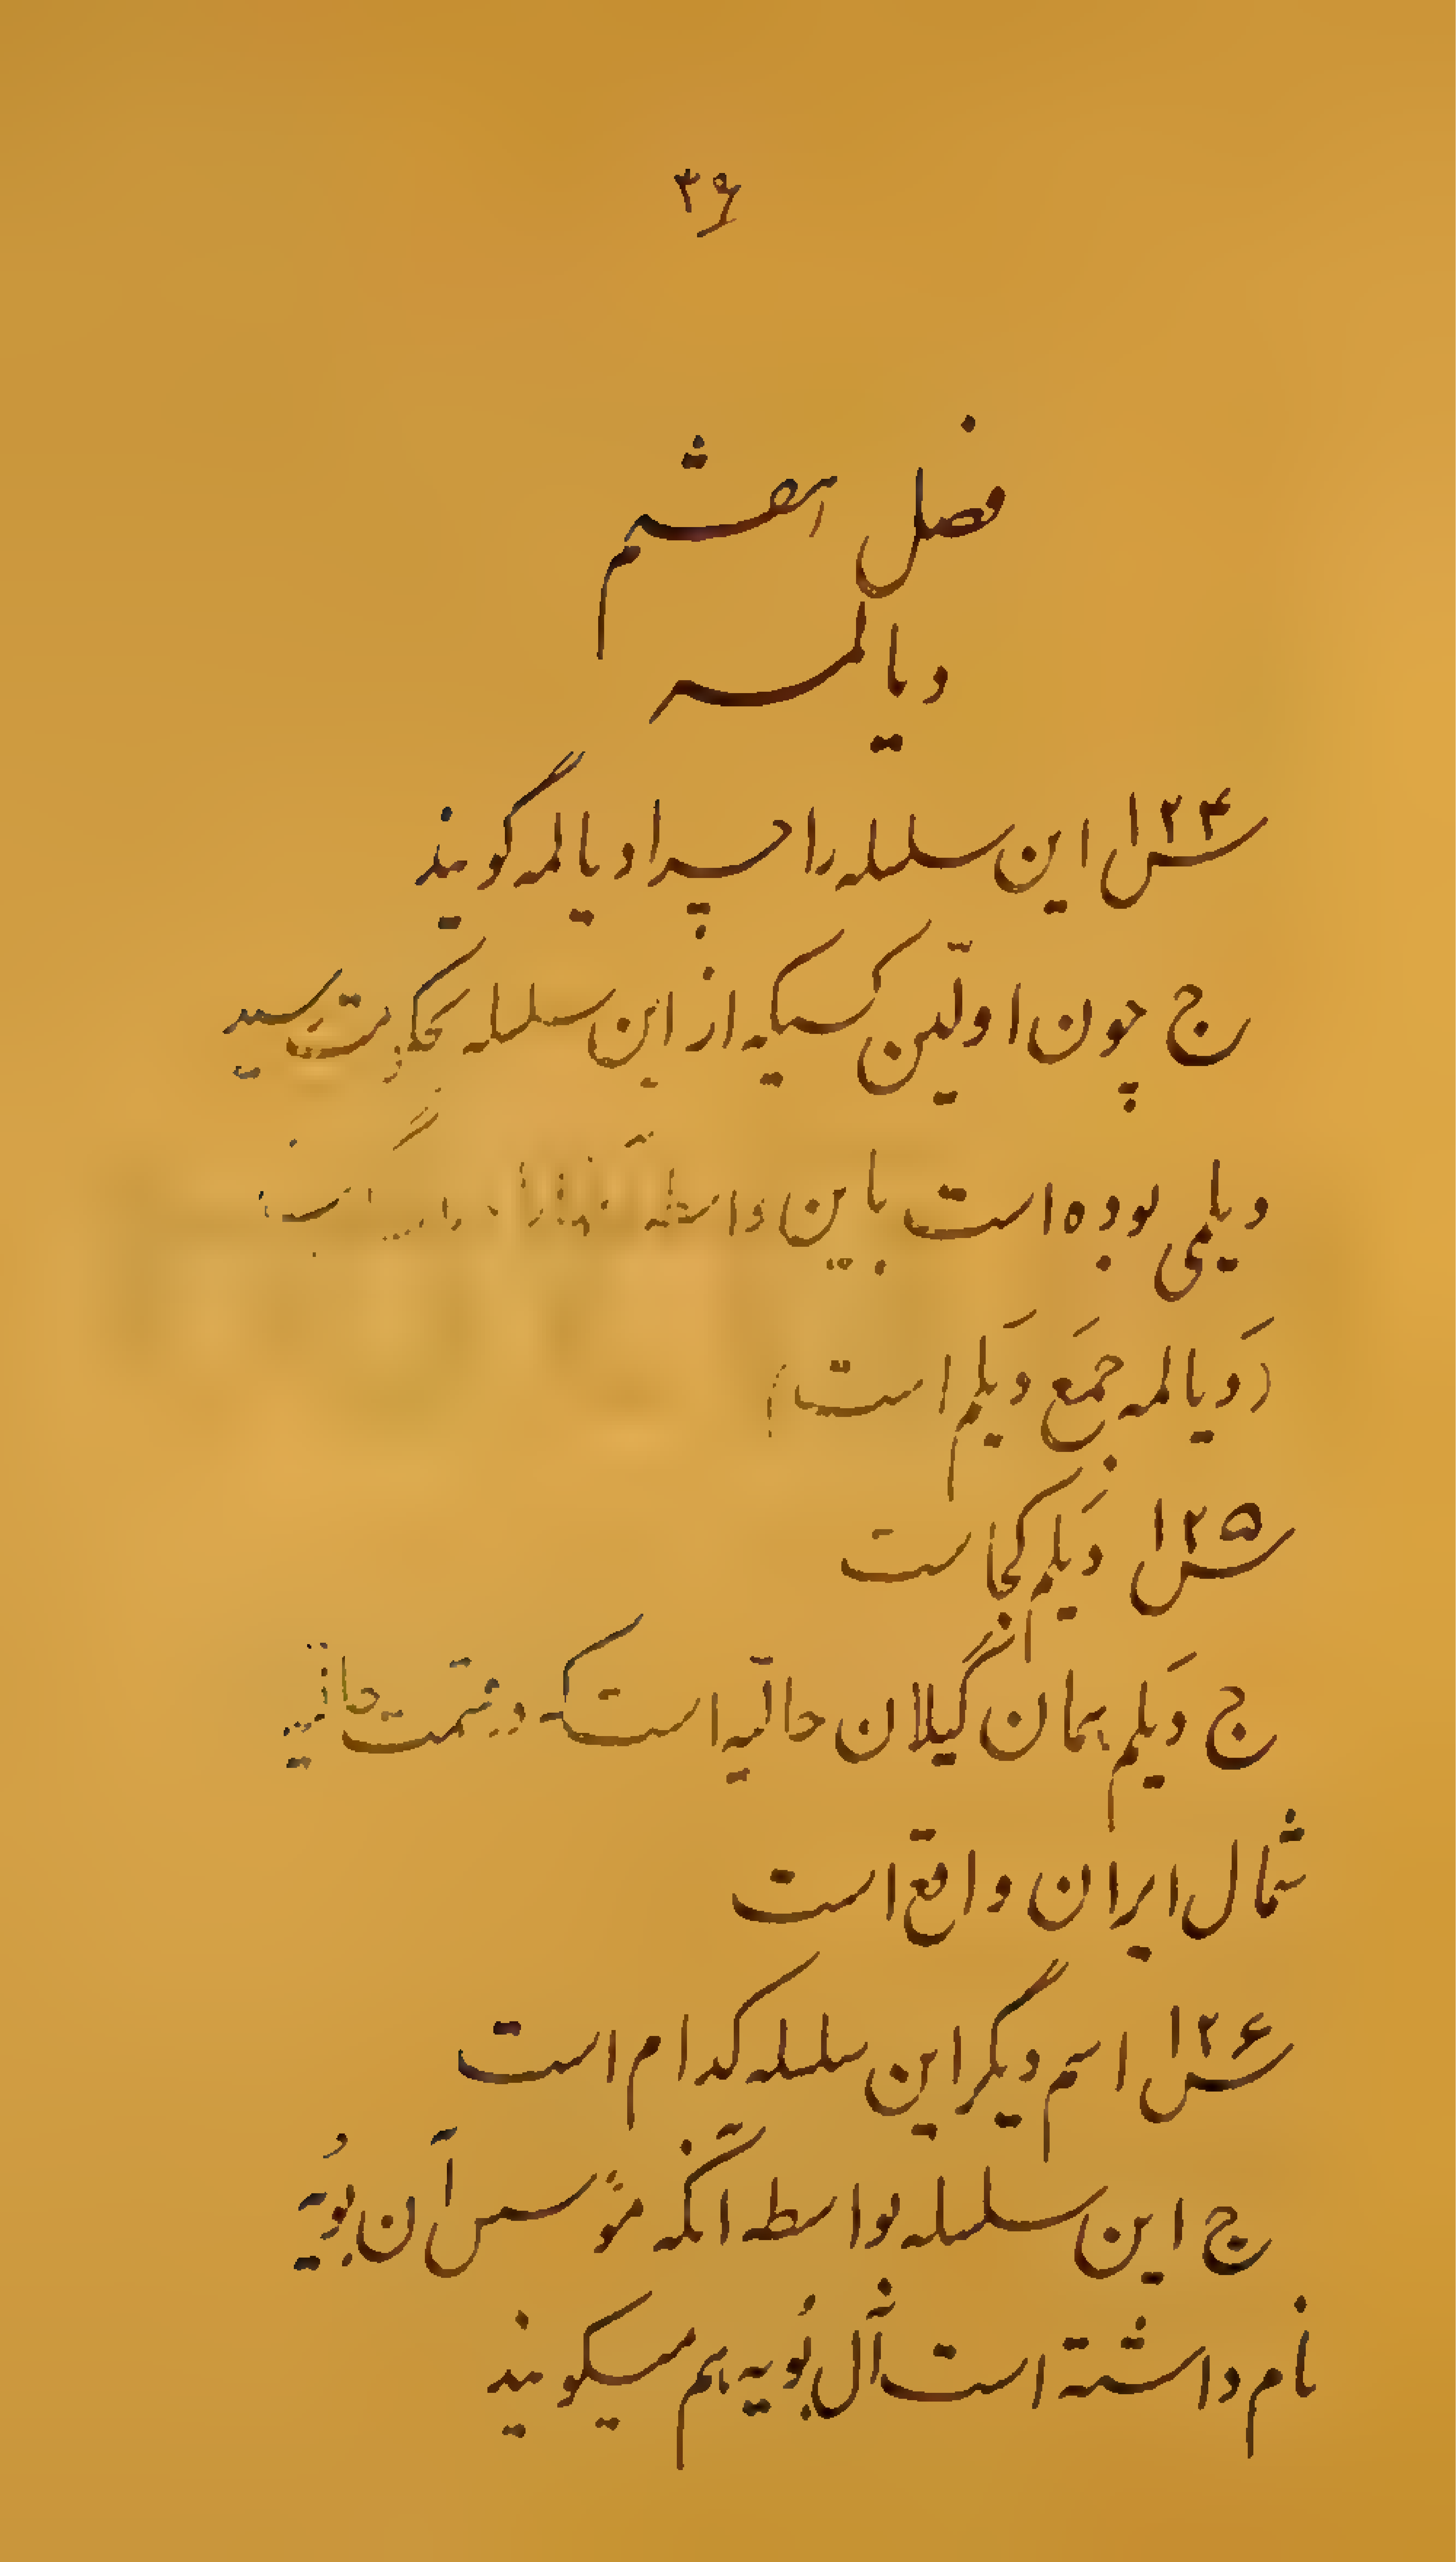 ۳۶
فصل هفتم
دیالمه
س۱۲۴ این سلسله را چرا دیالمه گویند
ج چون اولّین کسیکه از این سلسله بحکومت رسید
دیلمی بوده است باین واسطه
(دَیالمه جمَع دَیلَم است)
س۱۲۵ دَیلَم کجاست
ج دَیلم همان گیلان حالّیه است که در قسمت
شمال ایران واقع است
س۱۲۶ اسم دیگر این سلسله کدام است
ج این سلسله بواسطه آنکه مؤسس آن بُویَه
نام داشته است آل بُویه هم میگویند